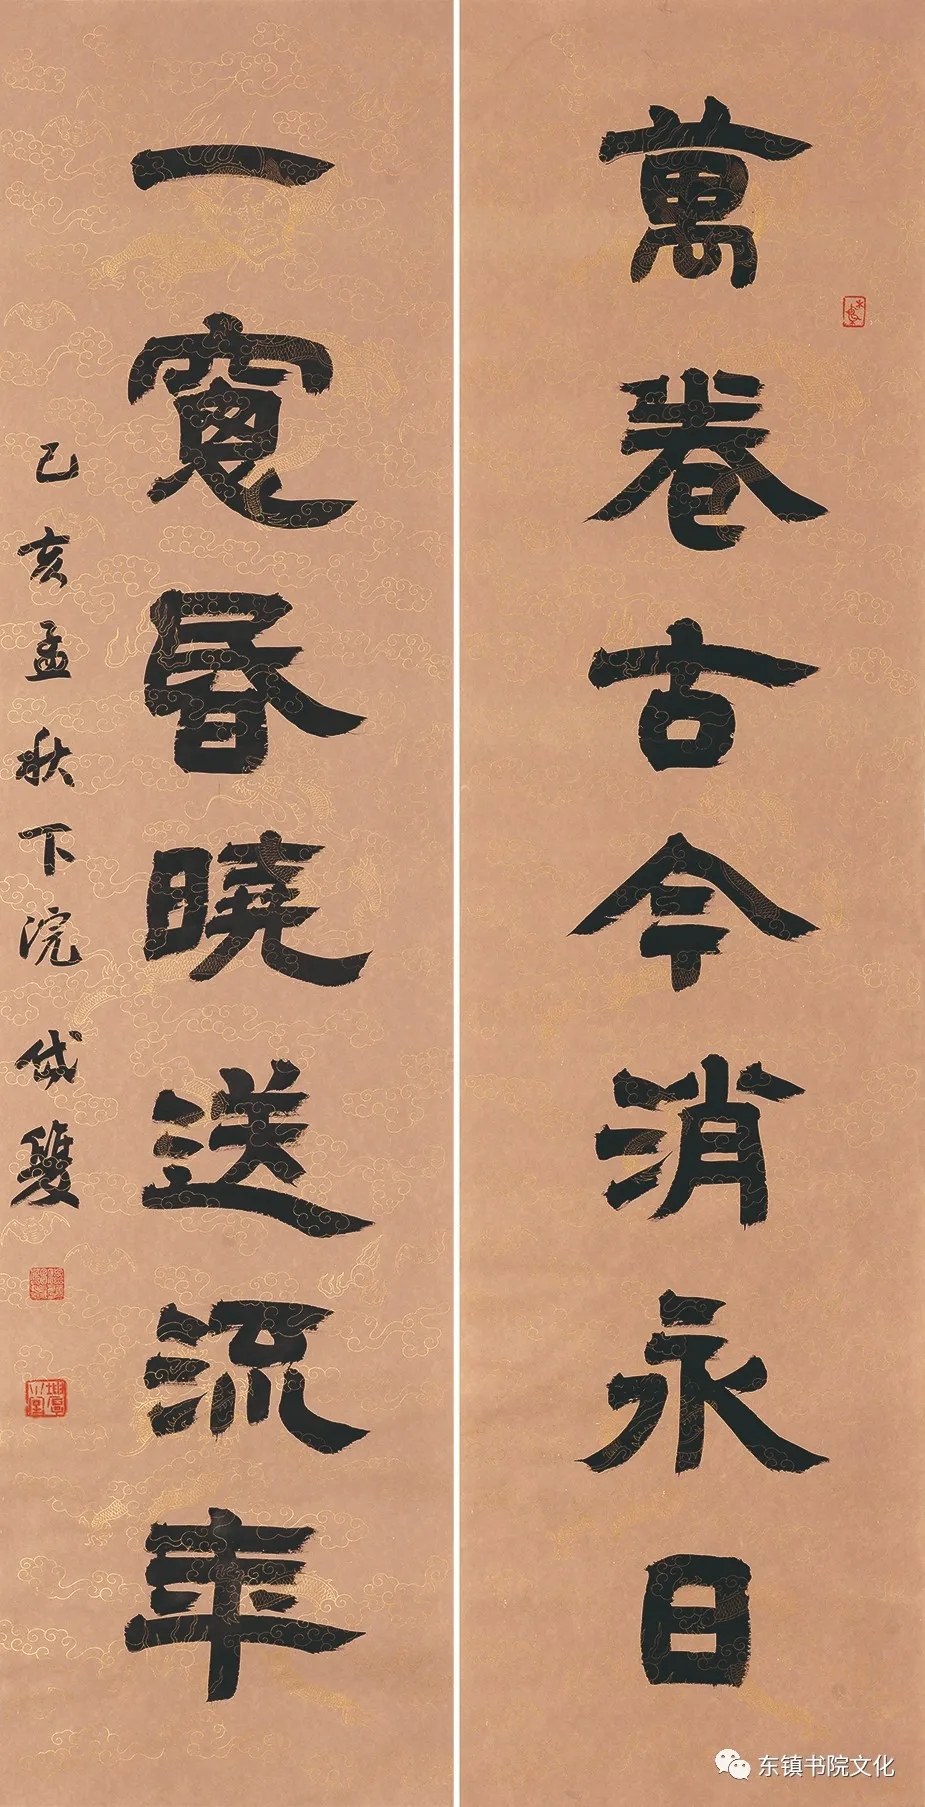 萬卷古今消永日
一窻昏曉送流年
己亥孟秋下浣岱雙
东镇书院文化